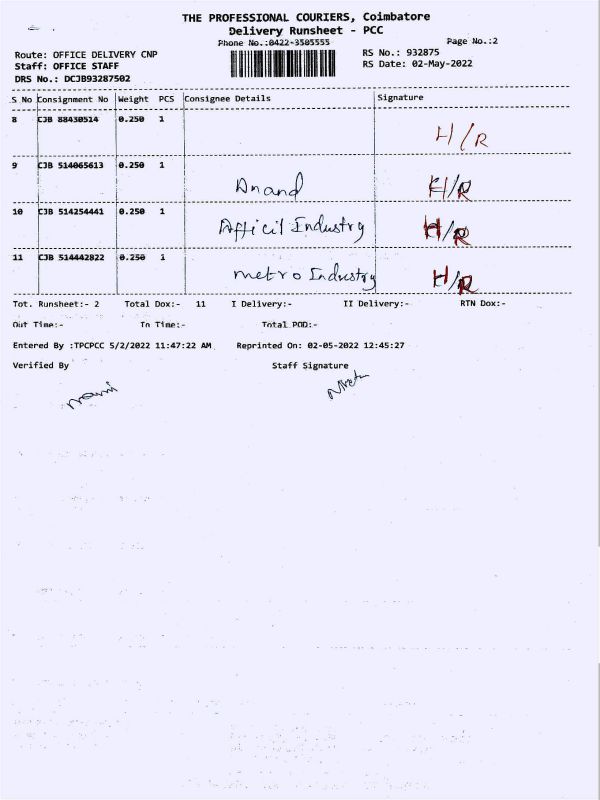 THE PROFESSIONAL COURIERS, Coimbatore
Delivery Runsheet - PCC
Phone No.:0422-3505555 Page No.:2
Route: OFFICE DELIVERY CNP RS No.: 932875
Staff: OFFICE STAFF RS Date: 02-May-2022
DRS No.: DCJB93287502
S No Consignment No Weight PCS Consignee Details Signature
8 CJB 88430514 0.250 1 H/R
9 CJB 514065613 0.250 1 Anand H/R
10 CJB 514254441 0.250 1 Industry H/R
11 CJB 514442822 0.250 1 metro Industry H/R
Tot. Runsheet:- 2 Total Dox:- 11 I Delivery:- II Delivery:- RTN Dox:-
Out Time:- In Time:- Total POD:-
Entered By :TPCPCC 5/2/2022 11:47:22 AM Reprinted On: 02-05-2022 12:45:27
Verified By Staff Signature